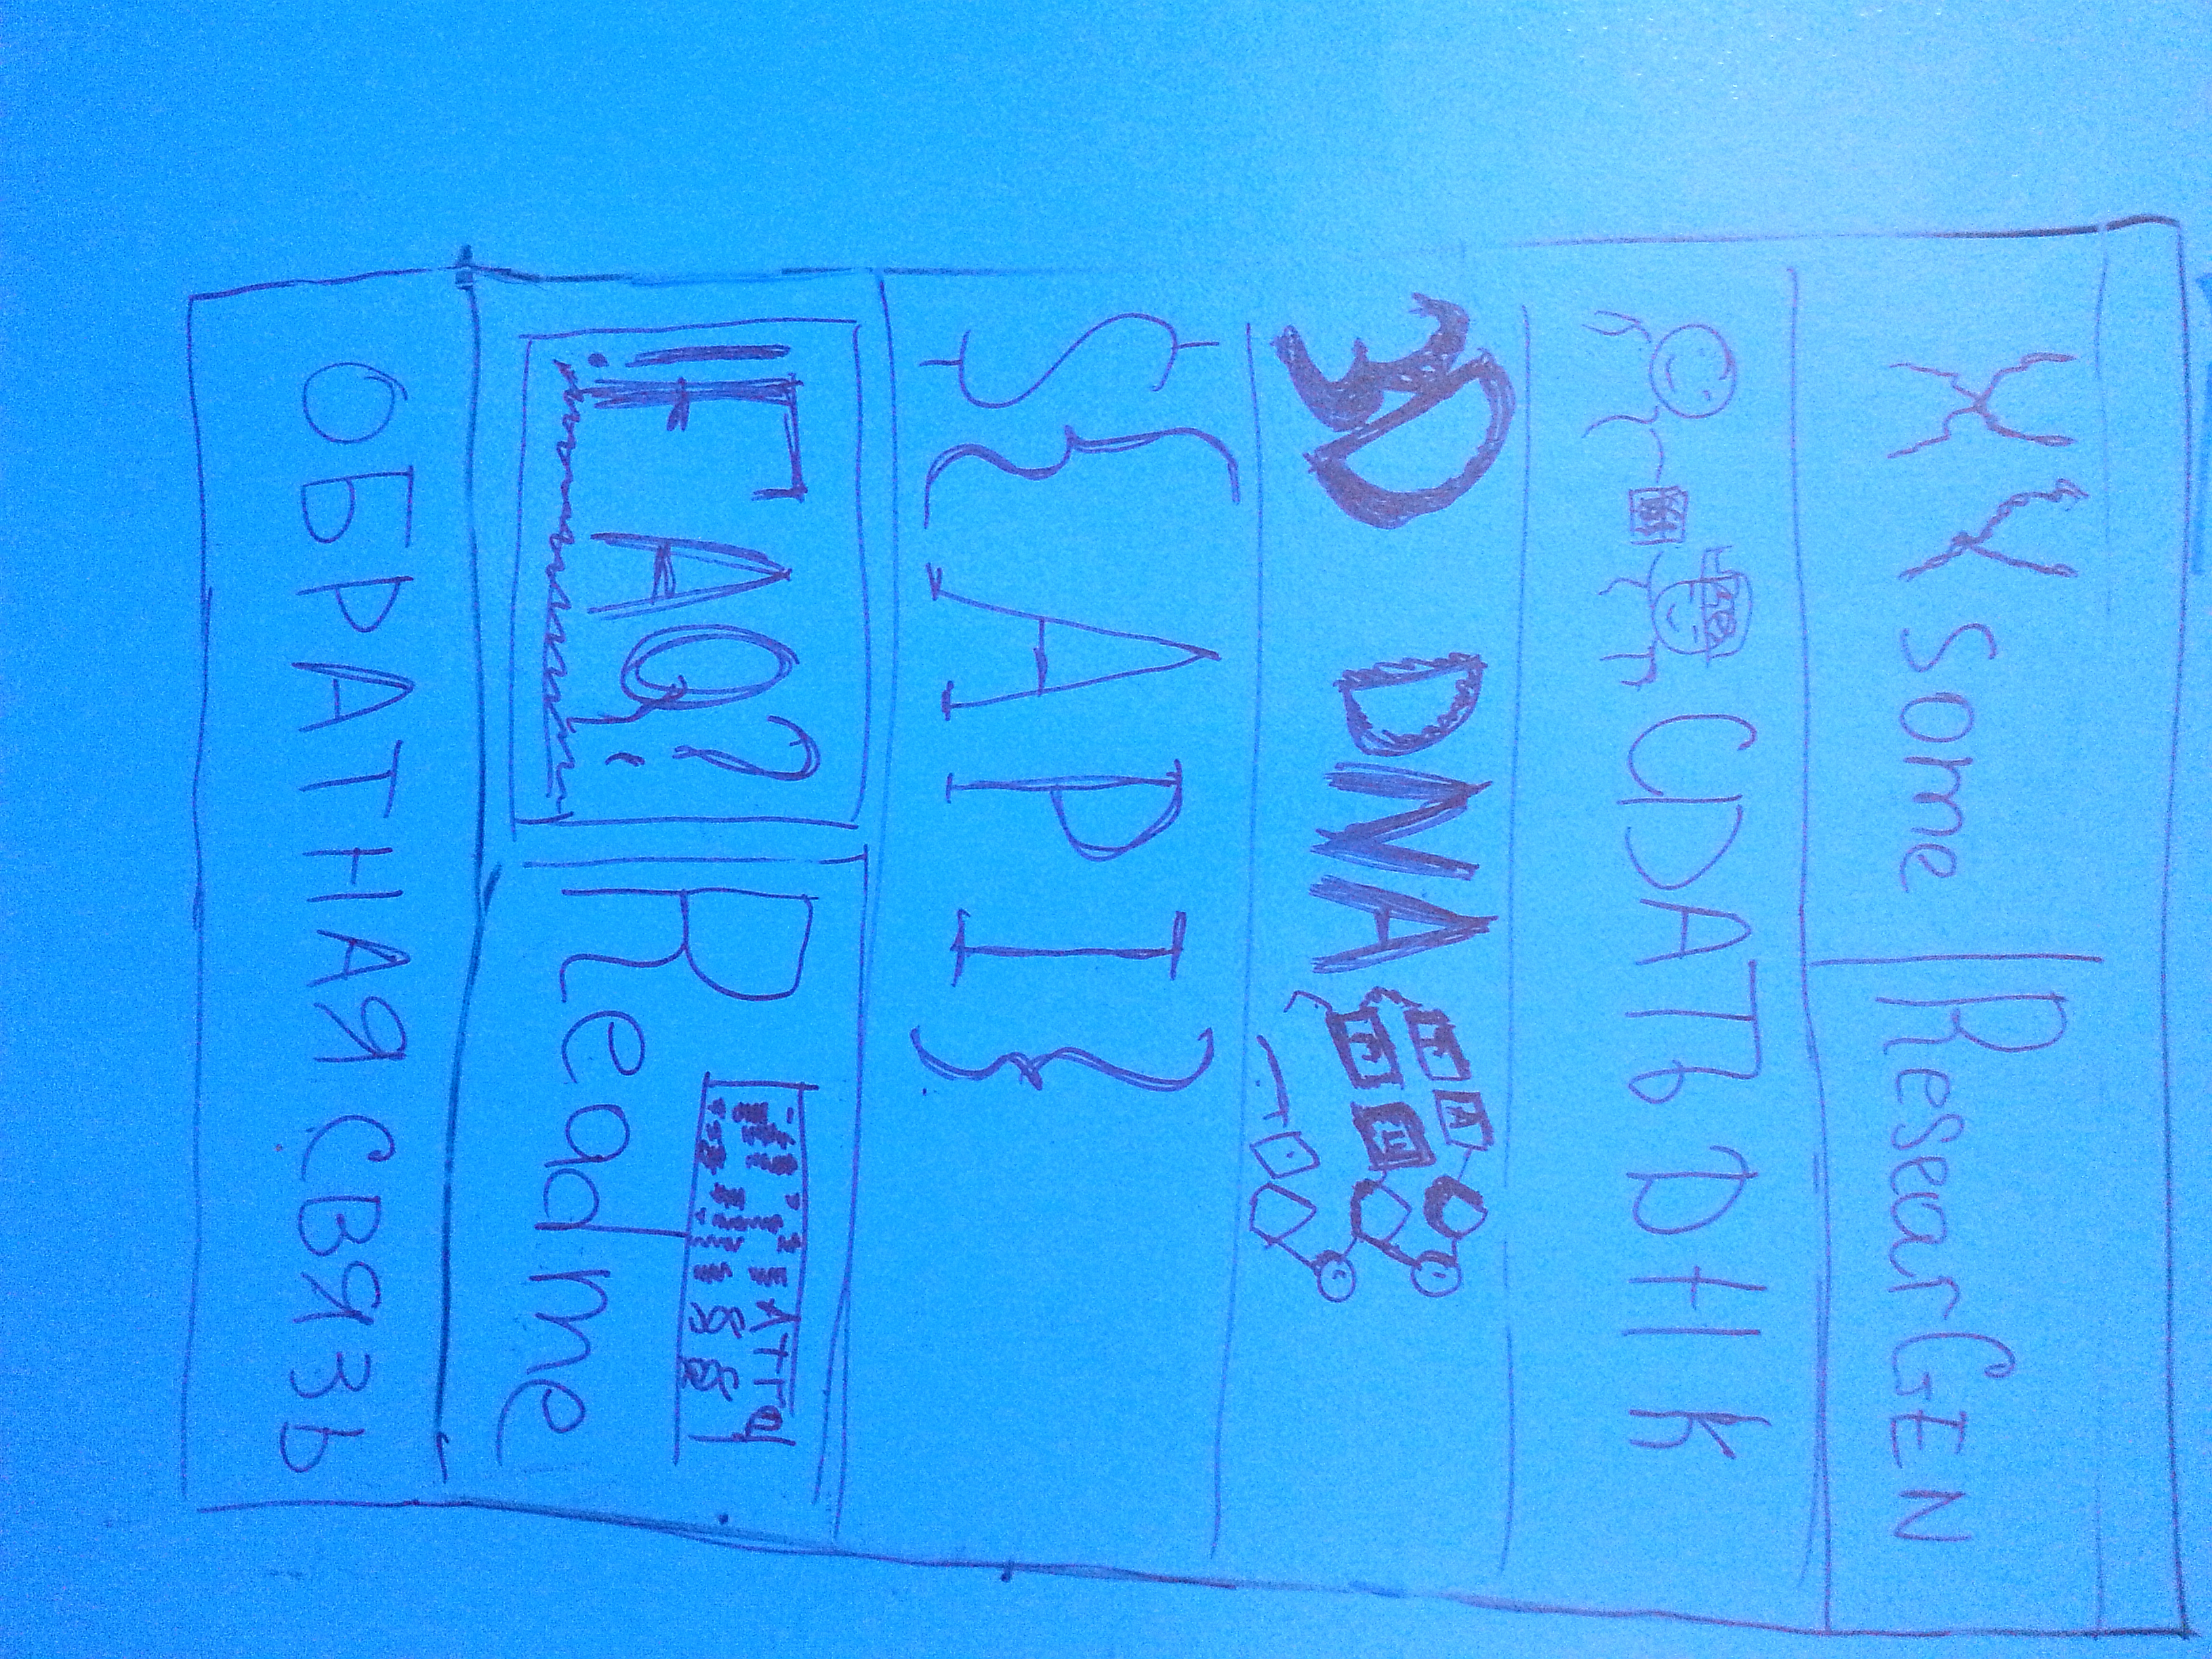 XY Some ResearGEN
СДАТЬ ДНК
3D DNA
${API}
!FAQ?
Readme
ОБРАТНАЯ СВЯЗЬ